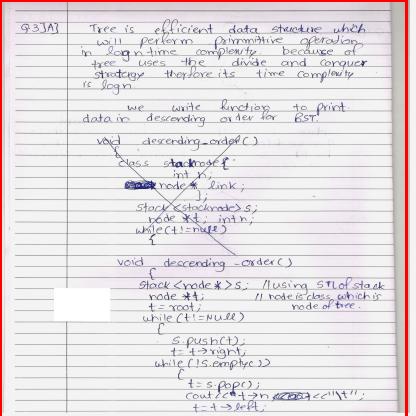 Q3]A]
Tree is efficient data structure which
will perform primmitive operation
in log n time complexity. because of
tree uses the divide and conquer
strategy therfore its time complexity
is logn
we write function to print
data in descending order for BST.
void descending_order()
{
class stacknode {
int n;
node * link;
};
stack <stacknode> s;
node *t; int n;
while(t!=null)
{
void descending_order()
{
stack <node *> s; //using STL of stack
node *t; // node is class which is
t = root; node of tree.
while (t!=NULL)
{
s.push(t);
t = t→right;
while (!s.empty())
{
t = s.pop();
cout<<t→n <<"\t";
t = t→left;